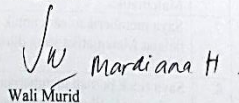 Mardiana H
Wali Murid